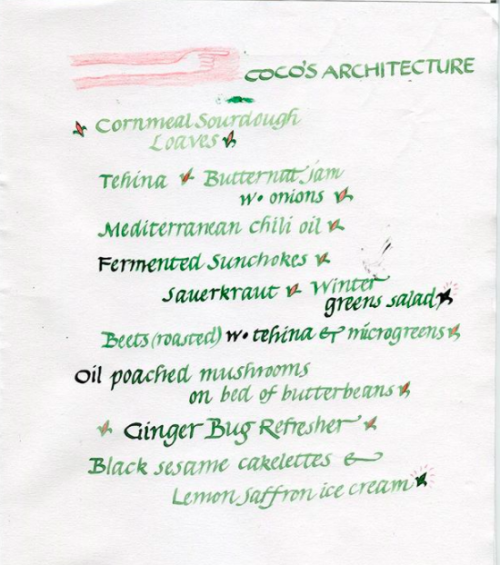 COCO'S ARCHITECTURE
Cornmeal Sourdough
Loaves
Tehina Butternut jam
w• onions
Mediterranean chili oil
Fermented Sunchokes
Sauerkraut Winter
greens salad
Beets (roasted) w• tehina & microgreens
Oil poached mushrooms
on bed of butterbeans
Ginger Bug Refresher
Black sesame cakelettes &
Lemon Saffron ice cream